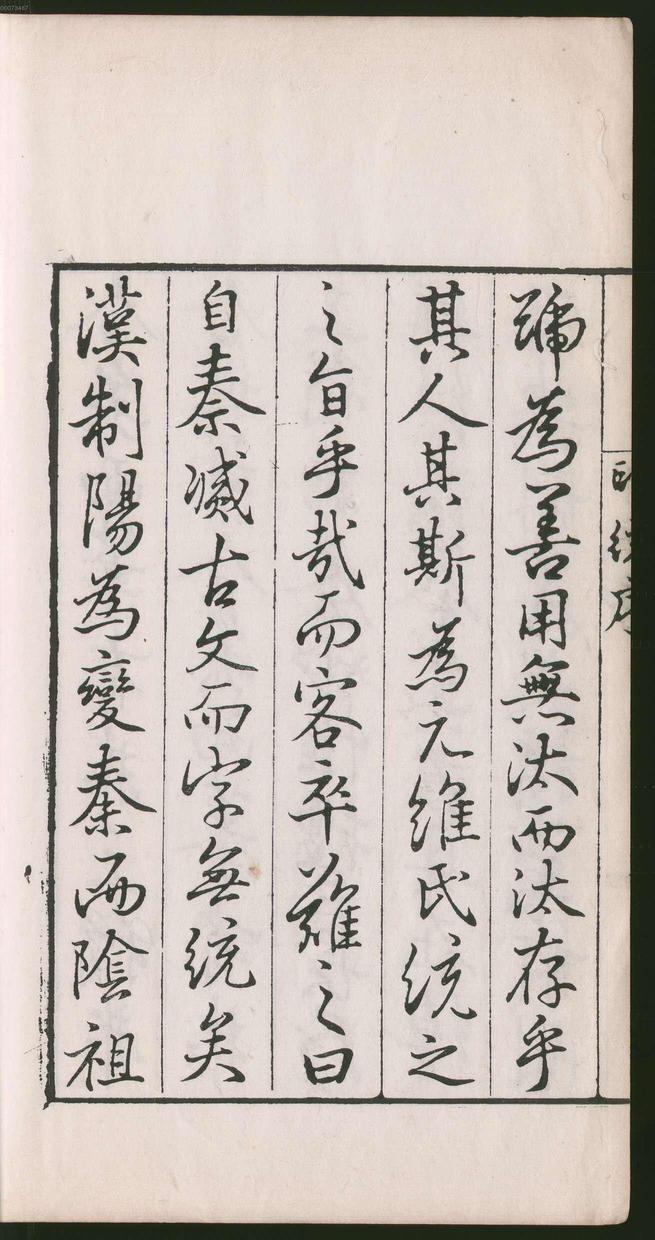 印統序
號為善用無汰而汰存乎
其人其斯為元維氏統之
之旨乎哉而客卒難之曰
自秦滅古文而字無統矣
漢制陽為變秦而陰祖